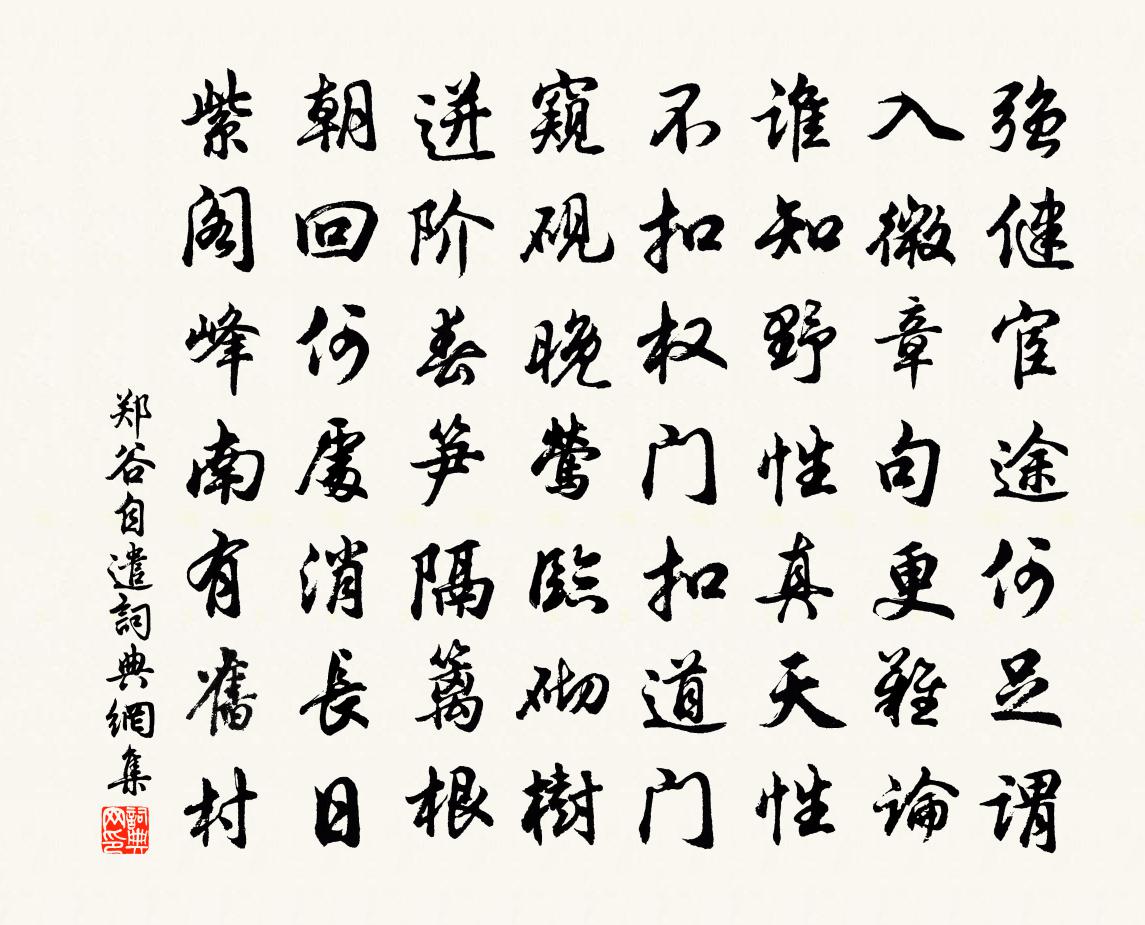 强健宦途何足谓
入微章句更难論
谁知野性真天性
不扣权门扣道门
窥砚晚莺臨砌樹
迸阶春笋隔篱根
朝回何處消長日
紫阁峰南有舊村
郑谷自遣詞典網集
詞典网印